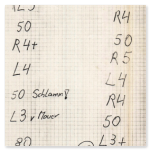 R4
50
R4+
L4
50 Schlamm!
L3 v Mauer
80
R4
50
R5
L4
R4
50
L3+